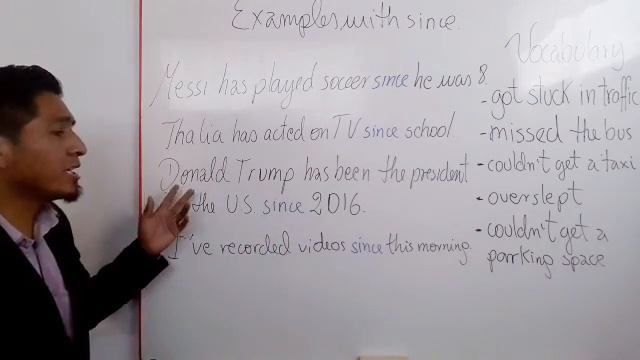 Examples with since.
Messi has played soccer since he was 8.
Thalia has acted on TV since school.
Donald Trump has been the president
the US since 2016.
I've recorded videos since this morning.
Vocabulary
- got stuck in traffic
- missed the bus
- couldn't get a taxi
- overslept
- couldn't get a
parking space